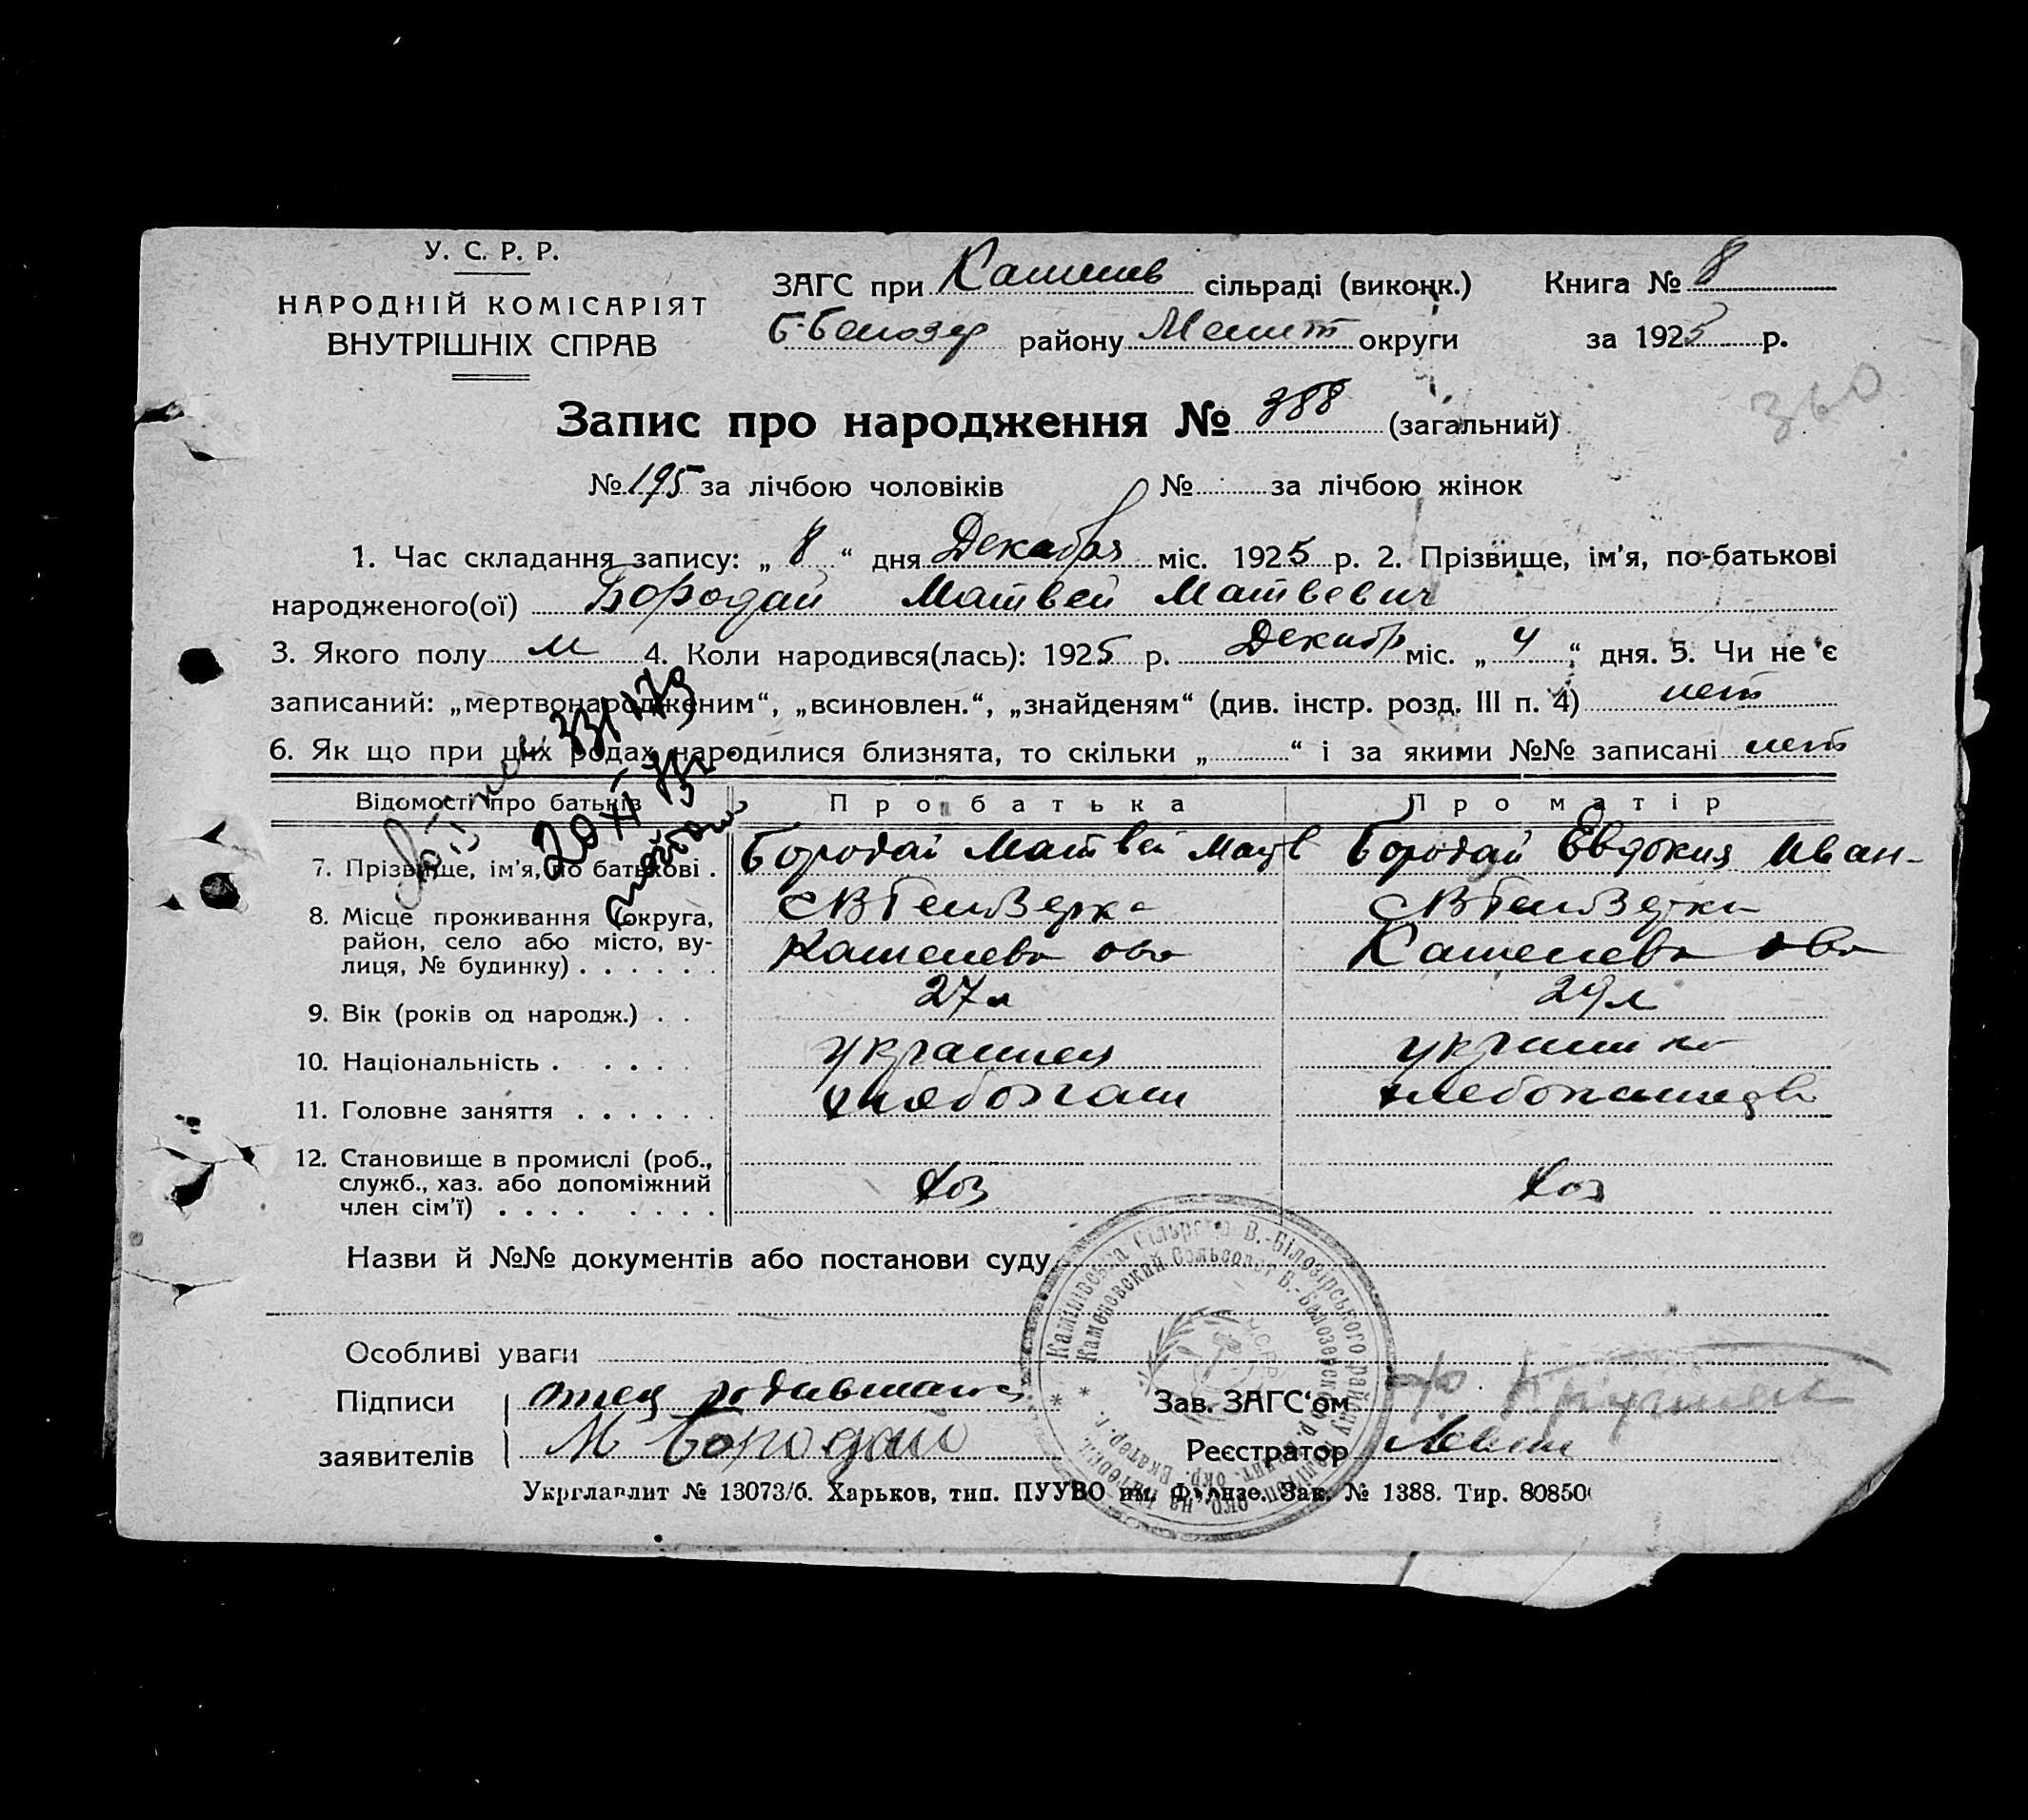 У. С. Р. Р.
НАРОДНІЙ КОМІСАРІЯТ
ВНУТРІШНІХ СПРАВ
ЗАГС при Каменев сільраді (виконк.)
Б-Белозер району Мелит округи
Книга № 8
за 1925 р.
360
Запис про народження № 388 (загальний)
№ 195 за лічбою чоловіків № за лічбою жінок
1. Час складання запису: „ 8 “ дня Декабря міс. 1925 р. 2. Прізвище, ім'я, по-батькові
народженого(ої) Бородай Матвей Матвевич
3. Якого полу м 4. Коли народився(лась): 1925 р. Декабр міс. „ 4 “ дня. 5. Чи не є
записаний: „мертвонародженим“, „всиновлен.“, „знайденям“ (див. інстр. розд. III п. 4) нет
6. Як що при цих родах народилися близнята, то скільки „ “ і за якими №№ записані нет
Відомості про батьків Про батька Про матір
7. Прізвище, ім'я, по батькові . Бородай Матвей Матв Бородай Евдокия Иван-
8. Місце проживання (округа,
район, село або місто, ву-
лиця, № будинку) . . . . . .
Каменева Каменева
9. Вік (років од народж.) . . 27 л 29 л
10. Національність . . . . . украинец украинка
11. Головне заняття . . . . . . хлебопаш
12. Становище в промислі (роб.,
служб., хаз. або допоміжний
член сім'ї) . . . . . . . . хоз хоз
Назви й №№ документів або постанови суду
Особливі уваги
Підписи отец Зав. ЗАГС‘ом
заявителів М Бородай Реєстратор
Камінівська Сільрада В.-Білозірського району
Каменевский Сельсовет Б.-Белозерского р.
Укрглавлит № 13073/б. Харьков, тип. ПУУВО им. Фрунзе. Зак. № 1388. Тир. 80850